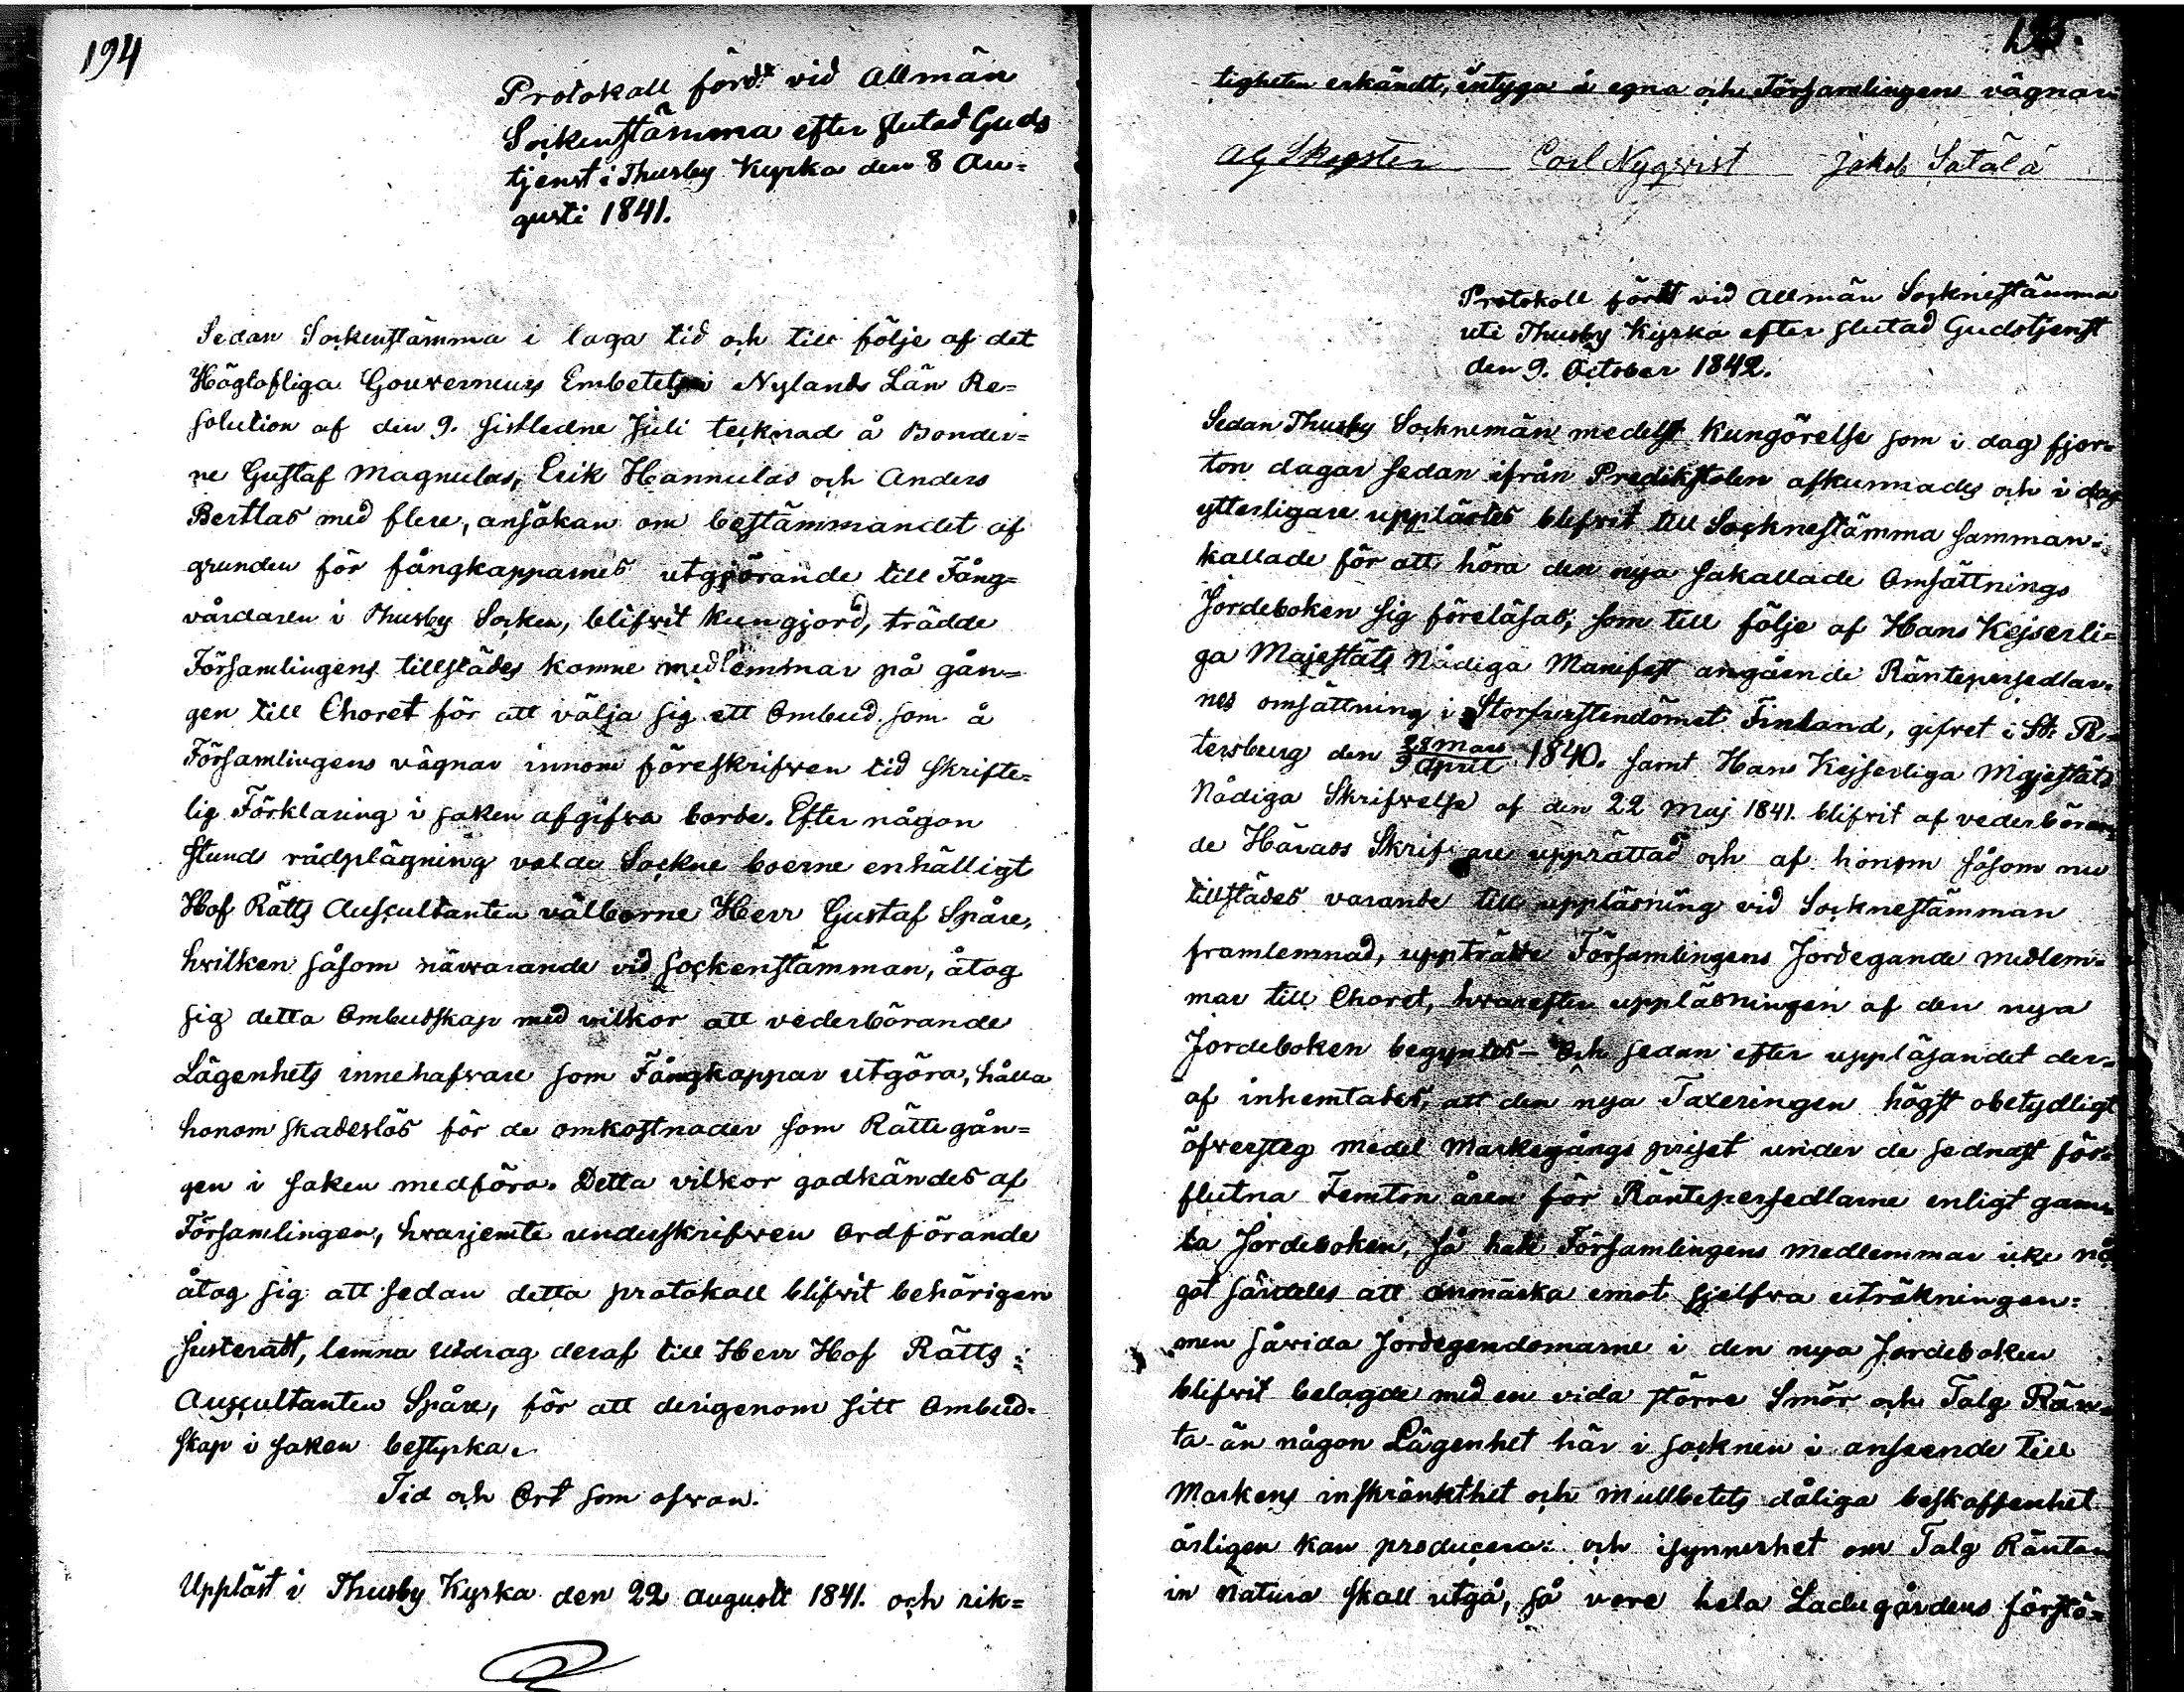 194
Protokoll fördt vid Allmän
Sockenstämma efter slutad Guds
tjenst i Thusby Kyrka den 8 Au=
gusti 1841.
Sedan Sockenstämma i laga tid och till följe af det
Höglofliga Gouverneurs Embetets i Nylands Län Re=
solution af den 9. sistledne Juli tecknad å Bönder=
ne Gustaf Magnulas, Erik Hannulas och Anders
Bertlas med flere, ansökan om bestämmandet af
grunden för fångkapparnes utgjörande till Fång=
vårdaren i Thusby Socken, blifvit kungjord, trädde
Församlingens tillstädes komne medlemmar på gån=
gen till Choret för att välja sig ett Ombud som å
Församlingens vägnar innom föreskrifven tid skrifte=
lig Förklaring i saken afgifva borde. Efter någon
stunds rådplägning valde Sockne boerne enhälligt
Hof Rätts Auscultanten välborne Herr Gustaf Spåre,
hvilken såsom närvarande vid sockenstämman, åtog
sig detta Ombudskap med vilkor att vederbörande
Lägenhets innehafvare som Fångkappar utgöra, hålla
honom skadeslös för de omkostnader som Rättegån=
gen i saken medföra. Detta vilkor godkändes af
Församlingen, hvarjemte underskrifven Ordförande
åtog sig att sedan detta protokoll blifvit behörigen
justeratt, lemna Utdrag deraf till Herr Hof Rätts
Auscultanten Spåre, för att derigenom sitt Ombud=
skap i saken bestyrka.
Tid och Ort som ofvan.
Uppläst i Thusby Kyrka den 22 Augusti 1841. och rik=
195.
tigheten erkändt, intyga å egna och Församlingens vägnar
Carl Nyqvist Jakob Sätälä
Protokoll fördt vid Allmän Socknestämma
uti Thusby Kyrka efter slutad Gudstjenst
den 9. October 1842.
Sedan Thusby Socknemän medelst Kungörelse som i dag fjor=
ton dagar sedan ifrån Predikstolen afkunnades och i dag
ytterligare upplästes blifvit till Socknestämma samman=
kallade för att höra den nya såkallade Omsättnings
Jordeboken sig föreläsas, som till följe af Hans Kejserli=
ga Majestäts Nådiga Manifest angående Räntepersedlar=
nes omsättning i Storfurstendömet Finland, gifvet i St. Pe=
tersburg den 28 Mars / 9 April 1840. samt Hans Kejserliga Majestäts
Nådiga Skrifvelse af den 22 Maj 1841. blifvit af vederböran=
de Härads Skrifvare upprättad och af honom såsom nu
tillstädes varande till uppläsning vid Socknestämman
framlemnad, uppträdde Församlingens Jordegande medlem=
mar till Choret, hvarefter uppläsningen af den nya
Jordeboken begyntes – Och sedan efter uppläsandet der=
af inhemtades, att den nya Taxeringen högst obetydligt
öfversteg medel Markegångs priset under de sednast för=
flutna Femton åren för Räntepersedlarne enligt gam=
la Jordeboken, så hade Församlingens medlemmar icke nå
got särdeles att anmärka emot sjelfva uträkningen:
men såvida Jordegendomarne i den nya Jordeboken
blifvit belagde med en vida större Smör och Talg Rän=
ta än någon Lägenhet här i socknen i anseende till
Markens inskränkthet och mullbetets dåliga beskaffenhet
årligen kan producera: och isynnerhet om Talg Räntan
in Natura skall utgå, så vore hela Ladugårdens förstö=